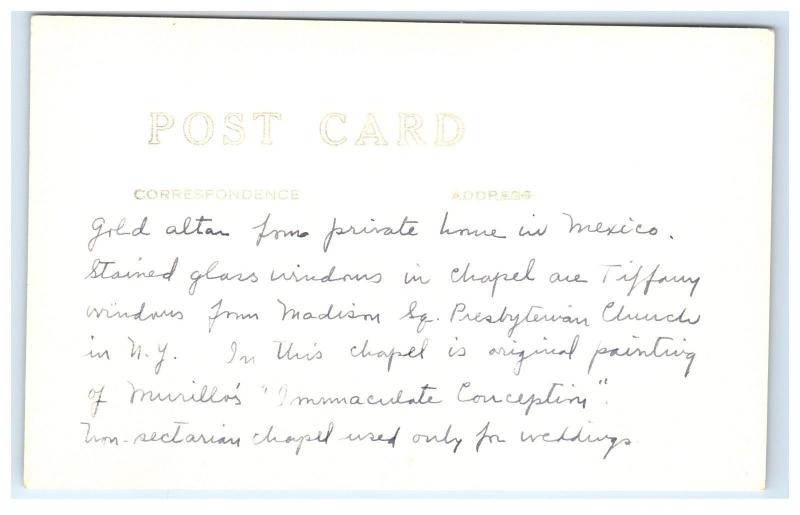 POST CARD
CORRESPONDENCE ADDRESS
Gold altar from private home in Mexico.
Stained glass windows in chapel are Tiffany
windows from Madison Sq. Presbyterian Church
in N.Y. In this chapel is original painting
of Murillo's "Immaculate Conception".
Non-sectarian chapel used only for weddings.